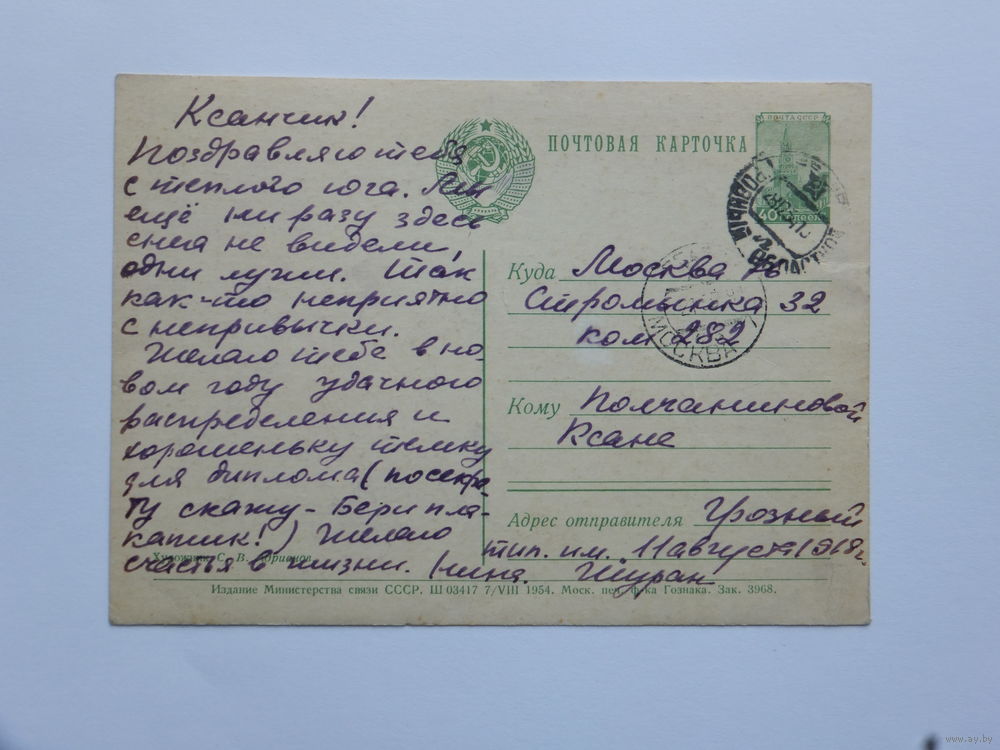 Ксанчик!
Поздравляю тебя
с теплого юга. Мы
ещё ни разу здесь
снега не видели,
одни лужи. Так
как-то неприятно
с непривычки.
Желаю тебе в но-
вом году удачного
распределения и
хорошеньку темку
для диплома (по секре-
ту скажу - Бери пла-
катик!) Желаю
счастья в жизни. Нина.
ПОЧТОВАЯ КАРТОЧКА
ПОЧТА СССР
40 копеек
Куда Москва 76
Стромынка 32
ком 282
МОСКВА
Кому Полчаниновой
Ксане
Адрес отправителя Грозный
тип. им. 11 август 1918 г.
Шуран
Художник С. В. Адрианов
Издание Министерства связи СССР. Ш 03417 7/VIII 1954. Моск. печ. ф-ка Гознака. Зак. 3968.
www.ay.by